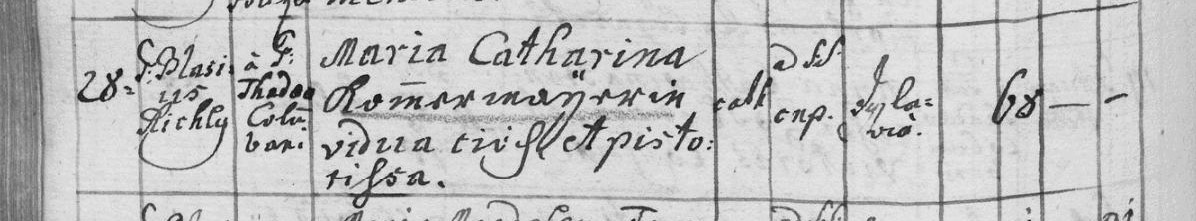 28.
P: Blasi:
us
Richly
à P:
Thadæo
Colũ
bani
Maria Catharina
Rom̄ermaÿerin
vidua civis et pisto:
rissa.
cath
ad SS
cnp.
Syla:
via.
68 — -